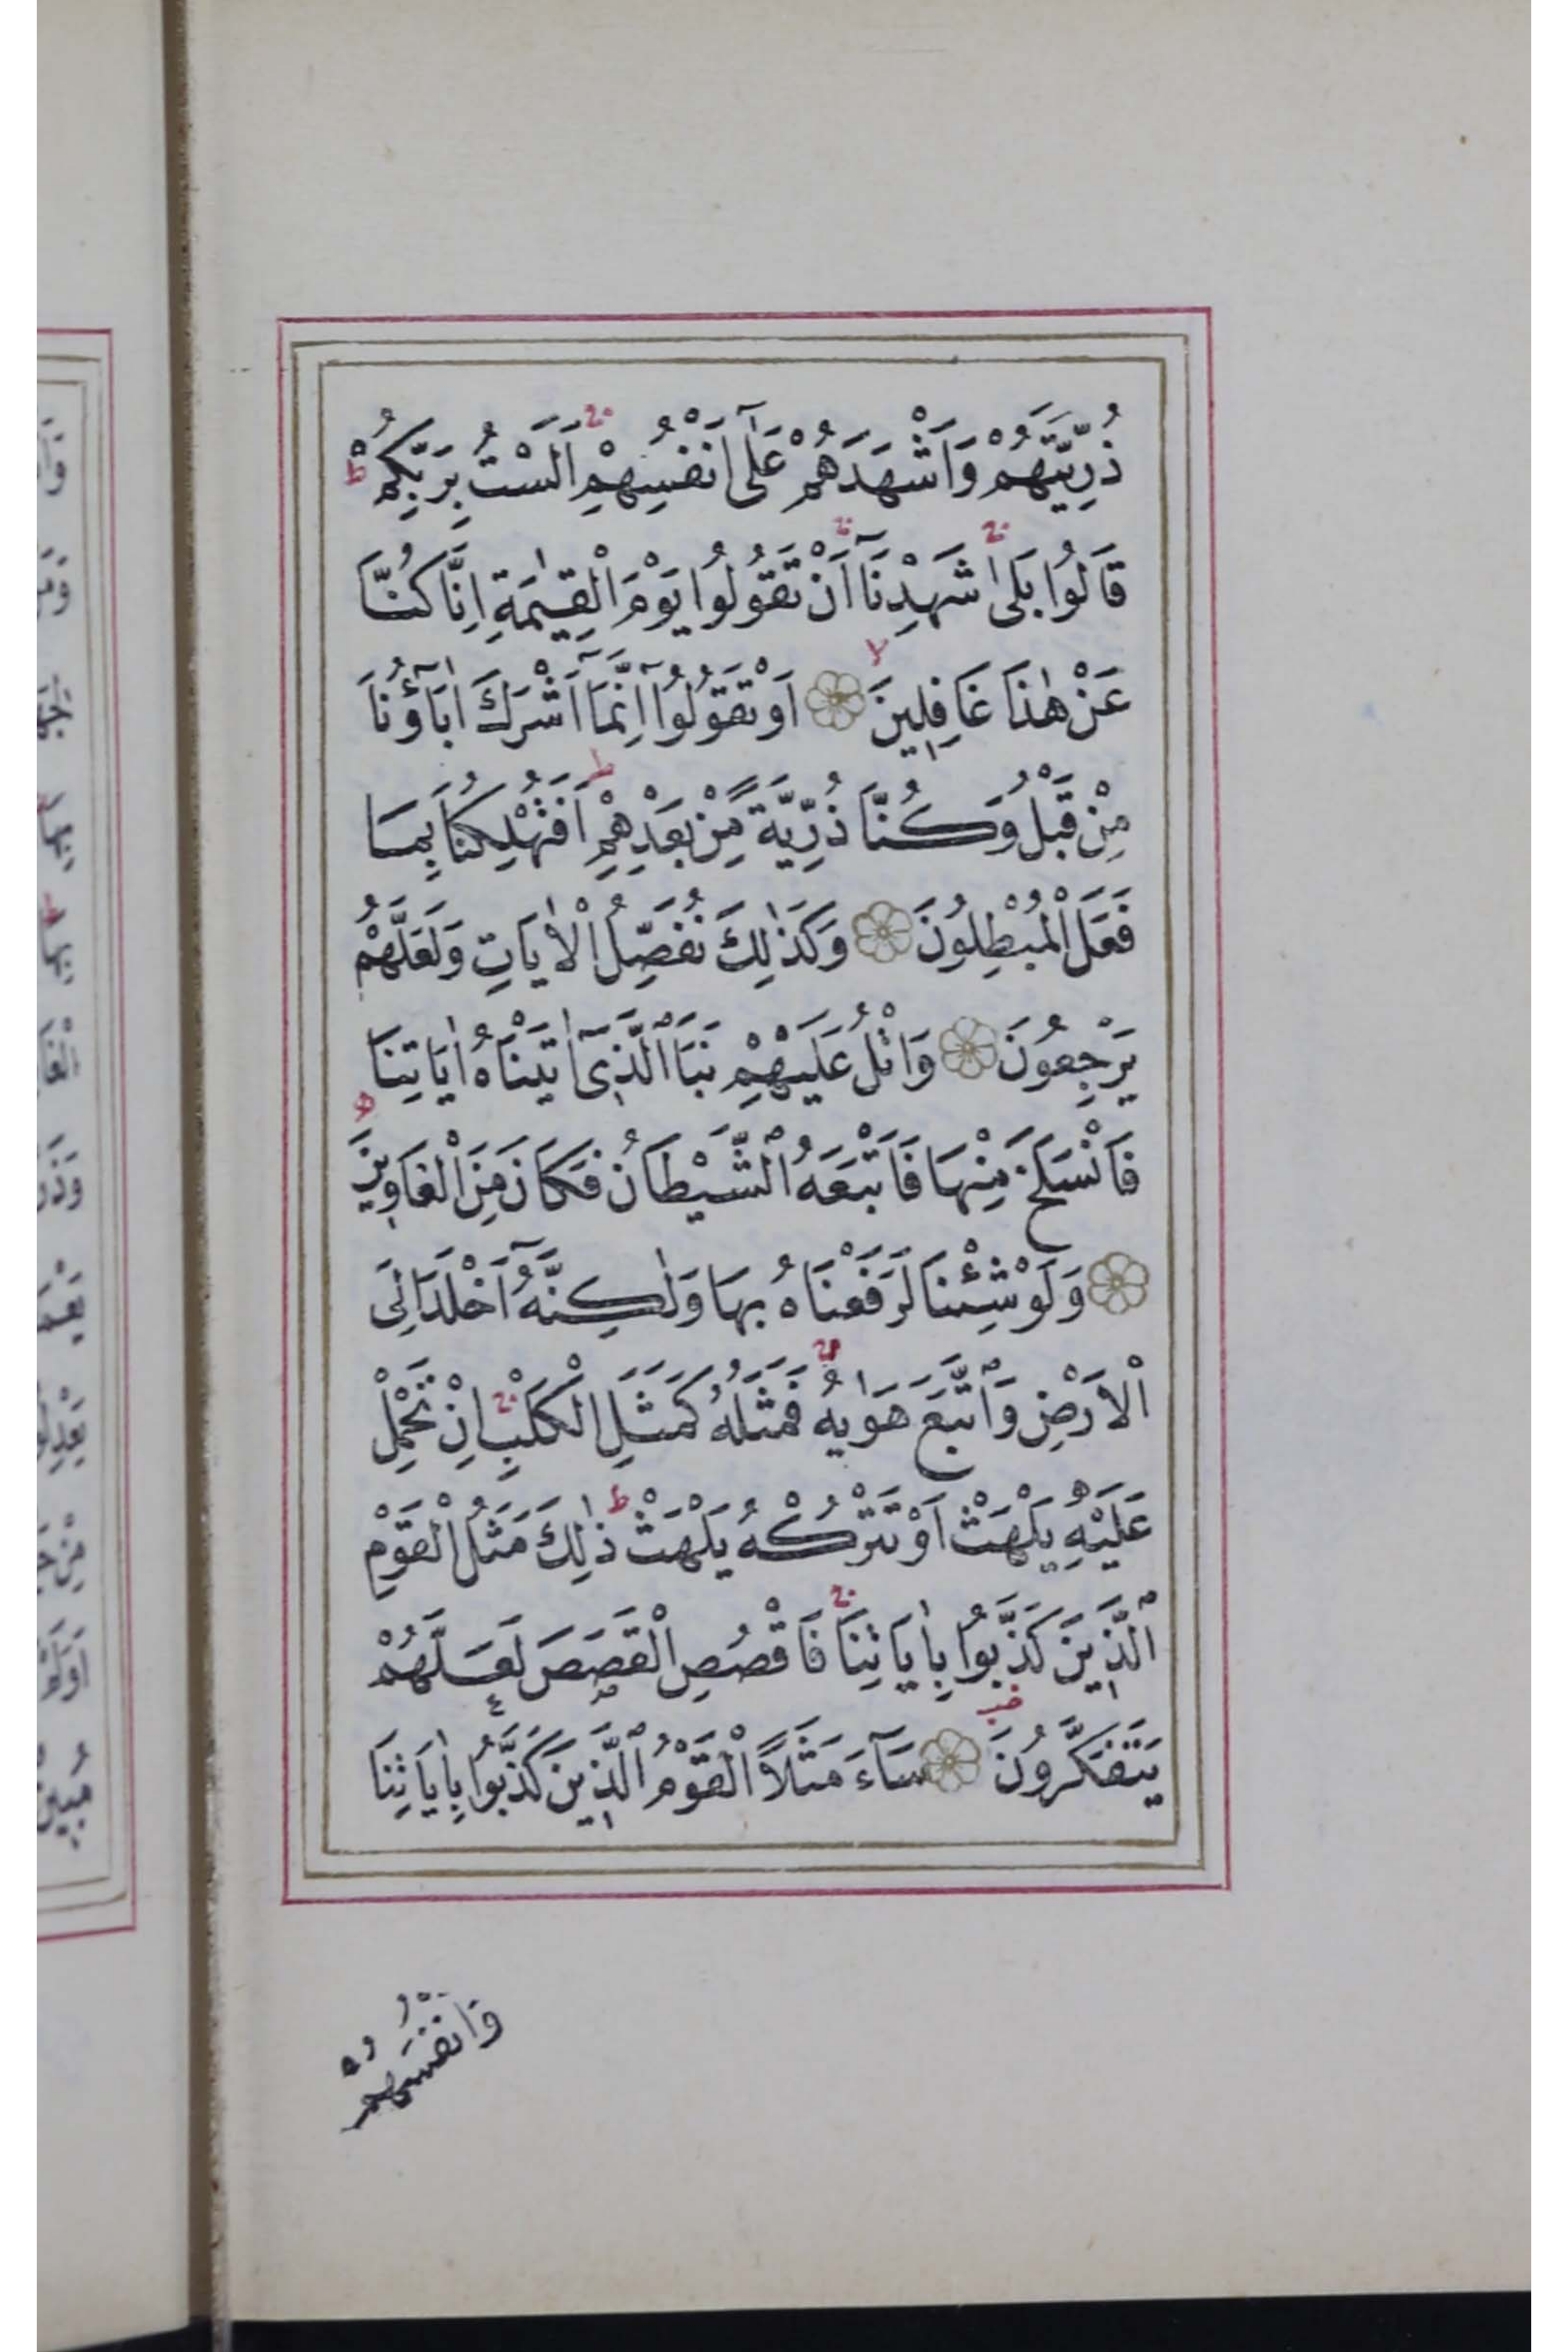 ذُرِّيَّتَهُمْ وَاَشْهَدَهُمْ عَلٰٓى اَنْفُسِهِمْ اَلَسْتُ بِرَبِّكُمْ ط
قَالُوا بَلٰى شَهِدْنَآ اَنْ تَقُولُوا يَوْمَ الْقِيٰمَةِ اِنَّا كُنَّا
عَنْ هٰذَا غَافِلِينَ لا اَوْ تَقُولُوٓا اِنَّمَآ اَشْرَكَ اٰبَآؤُنَا
مِنْ قَبْلُ وَكُنَّا ذُرِّيَّةً مِّنْ بَعْدِهِمْ ط اَفَتُهْلِكُنَا بِمَا
فَعَلَ الْمُبْطِلُونَ وَكَذٰلِكَ نُفَصِّلُ الْاٰيَاتِ وَلَعَلَّهُمْ
يَرْجِعُونَ وَاتْلُ عَلَيْهِمْ نَبَاَ الَّذِىٓ اٰتَيْنَاهُ اٰيَاتِنَا
فَانْسَلَخَ مِنْهَا فَاَتْبَعَهُ الشَّيْطَانُ فَكَانَ مِنَ الْغَاوِينَ
وَلَوْ شِئْنَا لَرَفَعْنَاهُ بِهَا وَلٰكِنَّهُٓ اَخْلَدَ اِلَى
الْاَرْضِ وَاتَّبَعَ هَوٰيهُ فَمَثَلُهُ كَمَثَلِ الْكَلْبِ اِنْ تَحْمِلْ
عَلَيْهِ يَلْهَثْ اَوْ تَتْرُكْهُ يَلْهَثْ ط ذٰلِكَ مَثَلُ الْقَوْمِ
الَّذِينَ كَذَّبُوا بِاٰيَاتِنَا فَاقْصُصِ الْقَصَصَ لَعَلَّهُمْ
يَتَفَكَّرُونَ سَآءَ مَثَلًا الْقَوْمُ الَّذِينَ كَذَّبُوا بِاٰيَاتِنَا
وَاَنْفُسَهُمْ